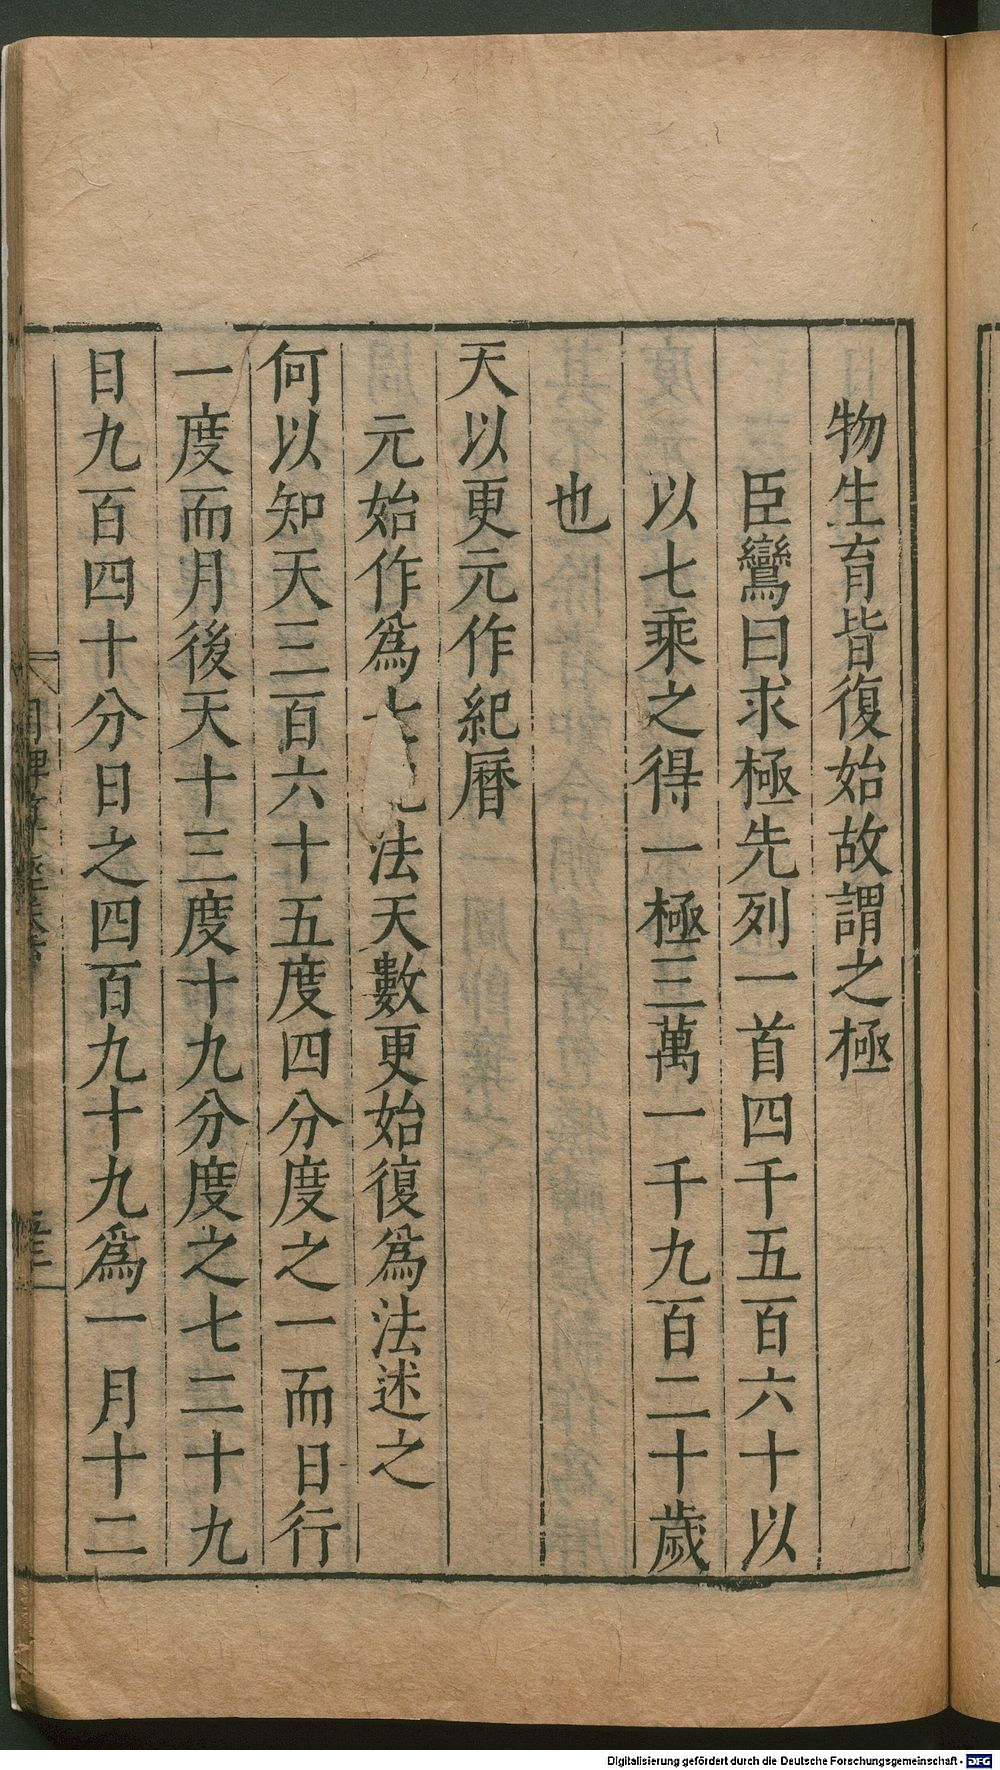 物生育皆復始故謂之極
臣鸞曰求極先列一首四千五百六十以
以七乘之得一極三萬一千九百二十歲
也
天以更元作紀曆
元始作爲七紀法天數更始復爲法述之
何以知天三百六十五度四分度之一而日行
一度而月後天十三度十九分度之七二十九
日九百四十分日之四百九十九爲一月十二
Digitalisierung gefördert durch die Deutsche Forschungsgemeinschaft - DFG